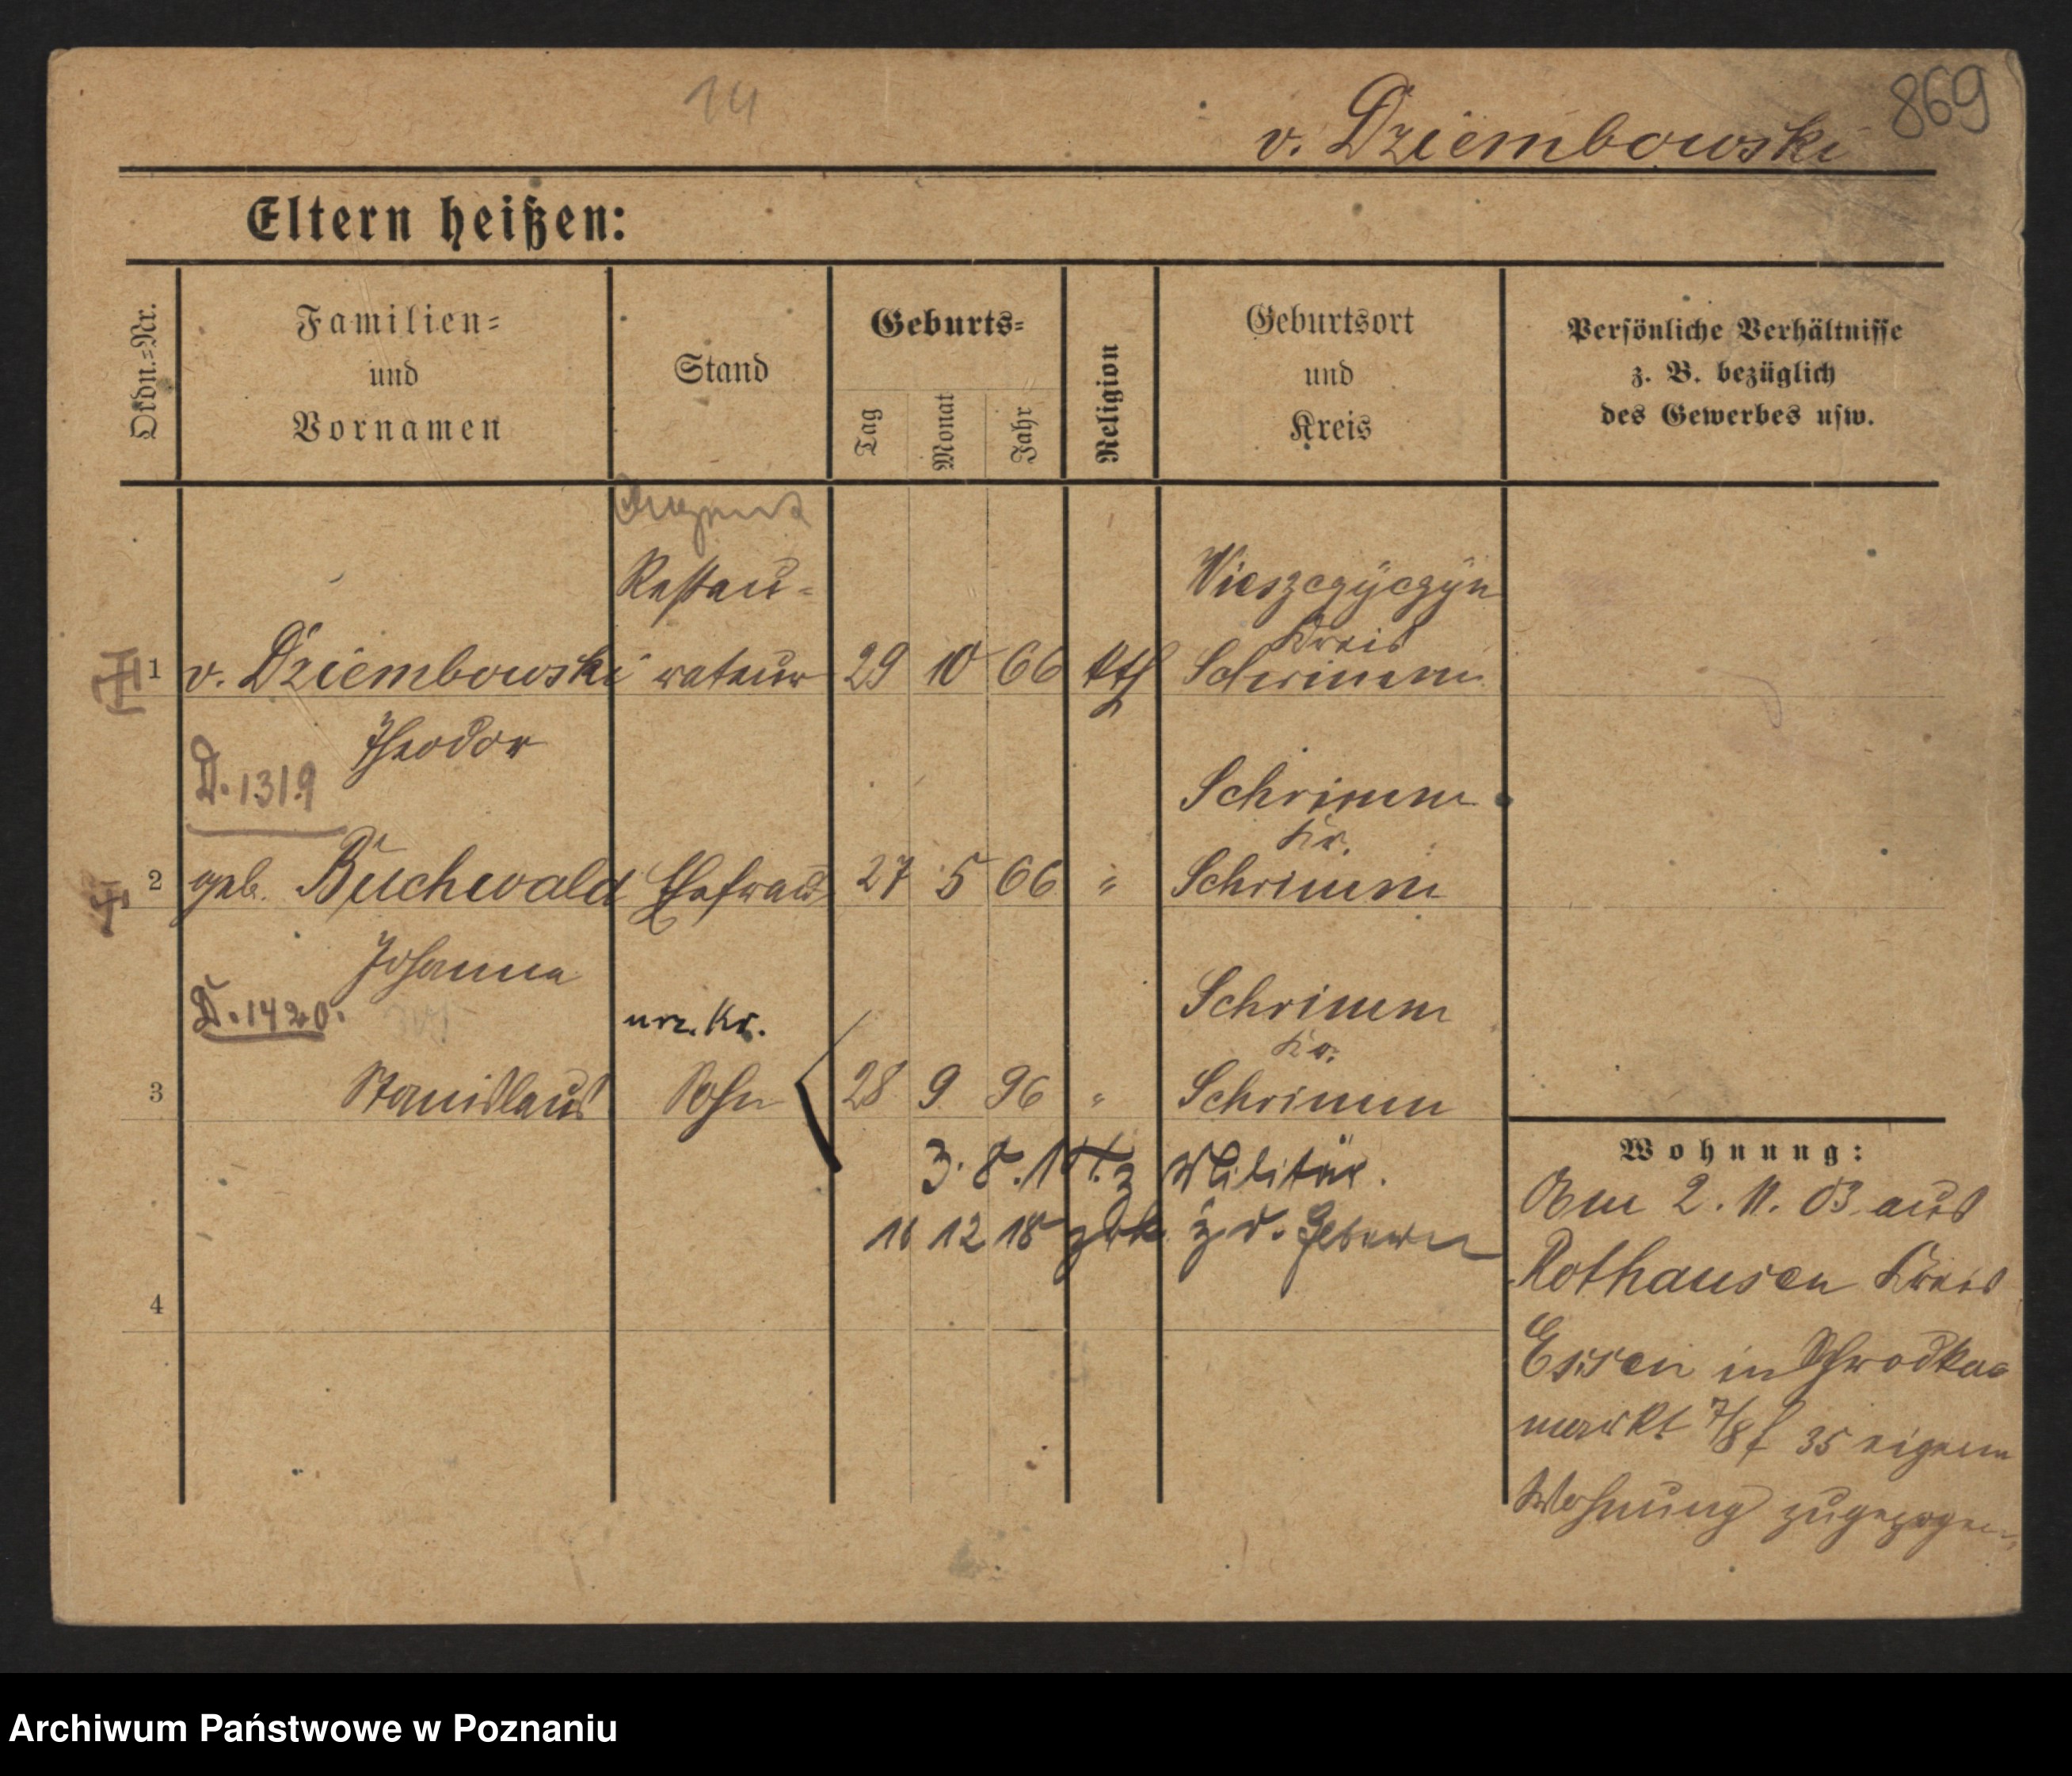 14
869
v. Dziembowski
Eltern heißen:
Ordn.=Nr.
Familien=
und
Vornamen
Stand
Geburts=
Tag
Monat
Jahr
Religion
Geburtsort
und
Kreis
Persönliche Verhältnisse
z. B. bezüglich
des Gewerbes usw.
Restau=
Wieszczyczyn
Kreis
1 v. Dziembowski rateur 29 10 66 kth Schrimm
Theodor
D. 1319
Schrimm
Kr.
2 geb. Buchwald Ehefrau 27 5 66 " Schrimm
Johanna
D. 1420.
urz. Kr.
Schrimm
Kr.
3 Stanislaus Sohn 28 9 96 " Schrimm
z Militär.
12 18 z. d. Eltern
4
Wohnung:
Am 2. 11. 03 aus
Rothausen Kreis
Essen in Schrodka
markt 7/8 35 eigene
Wohnung zugezogen
Archiwum Państwowe w Poznaniu